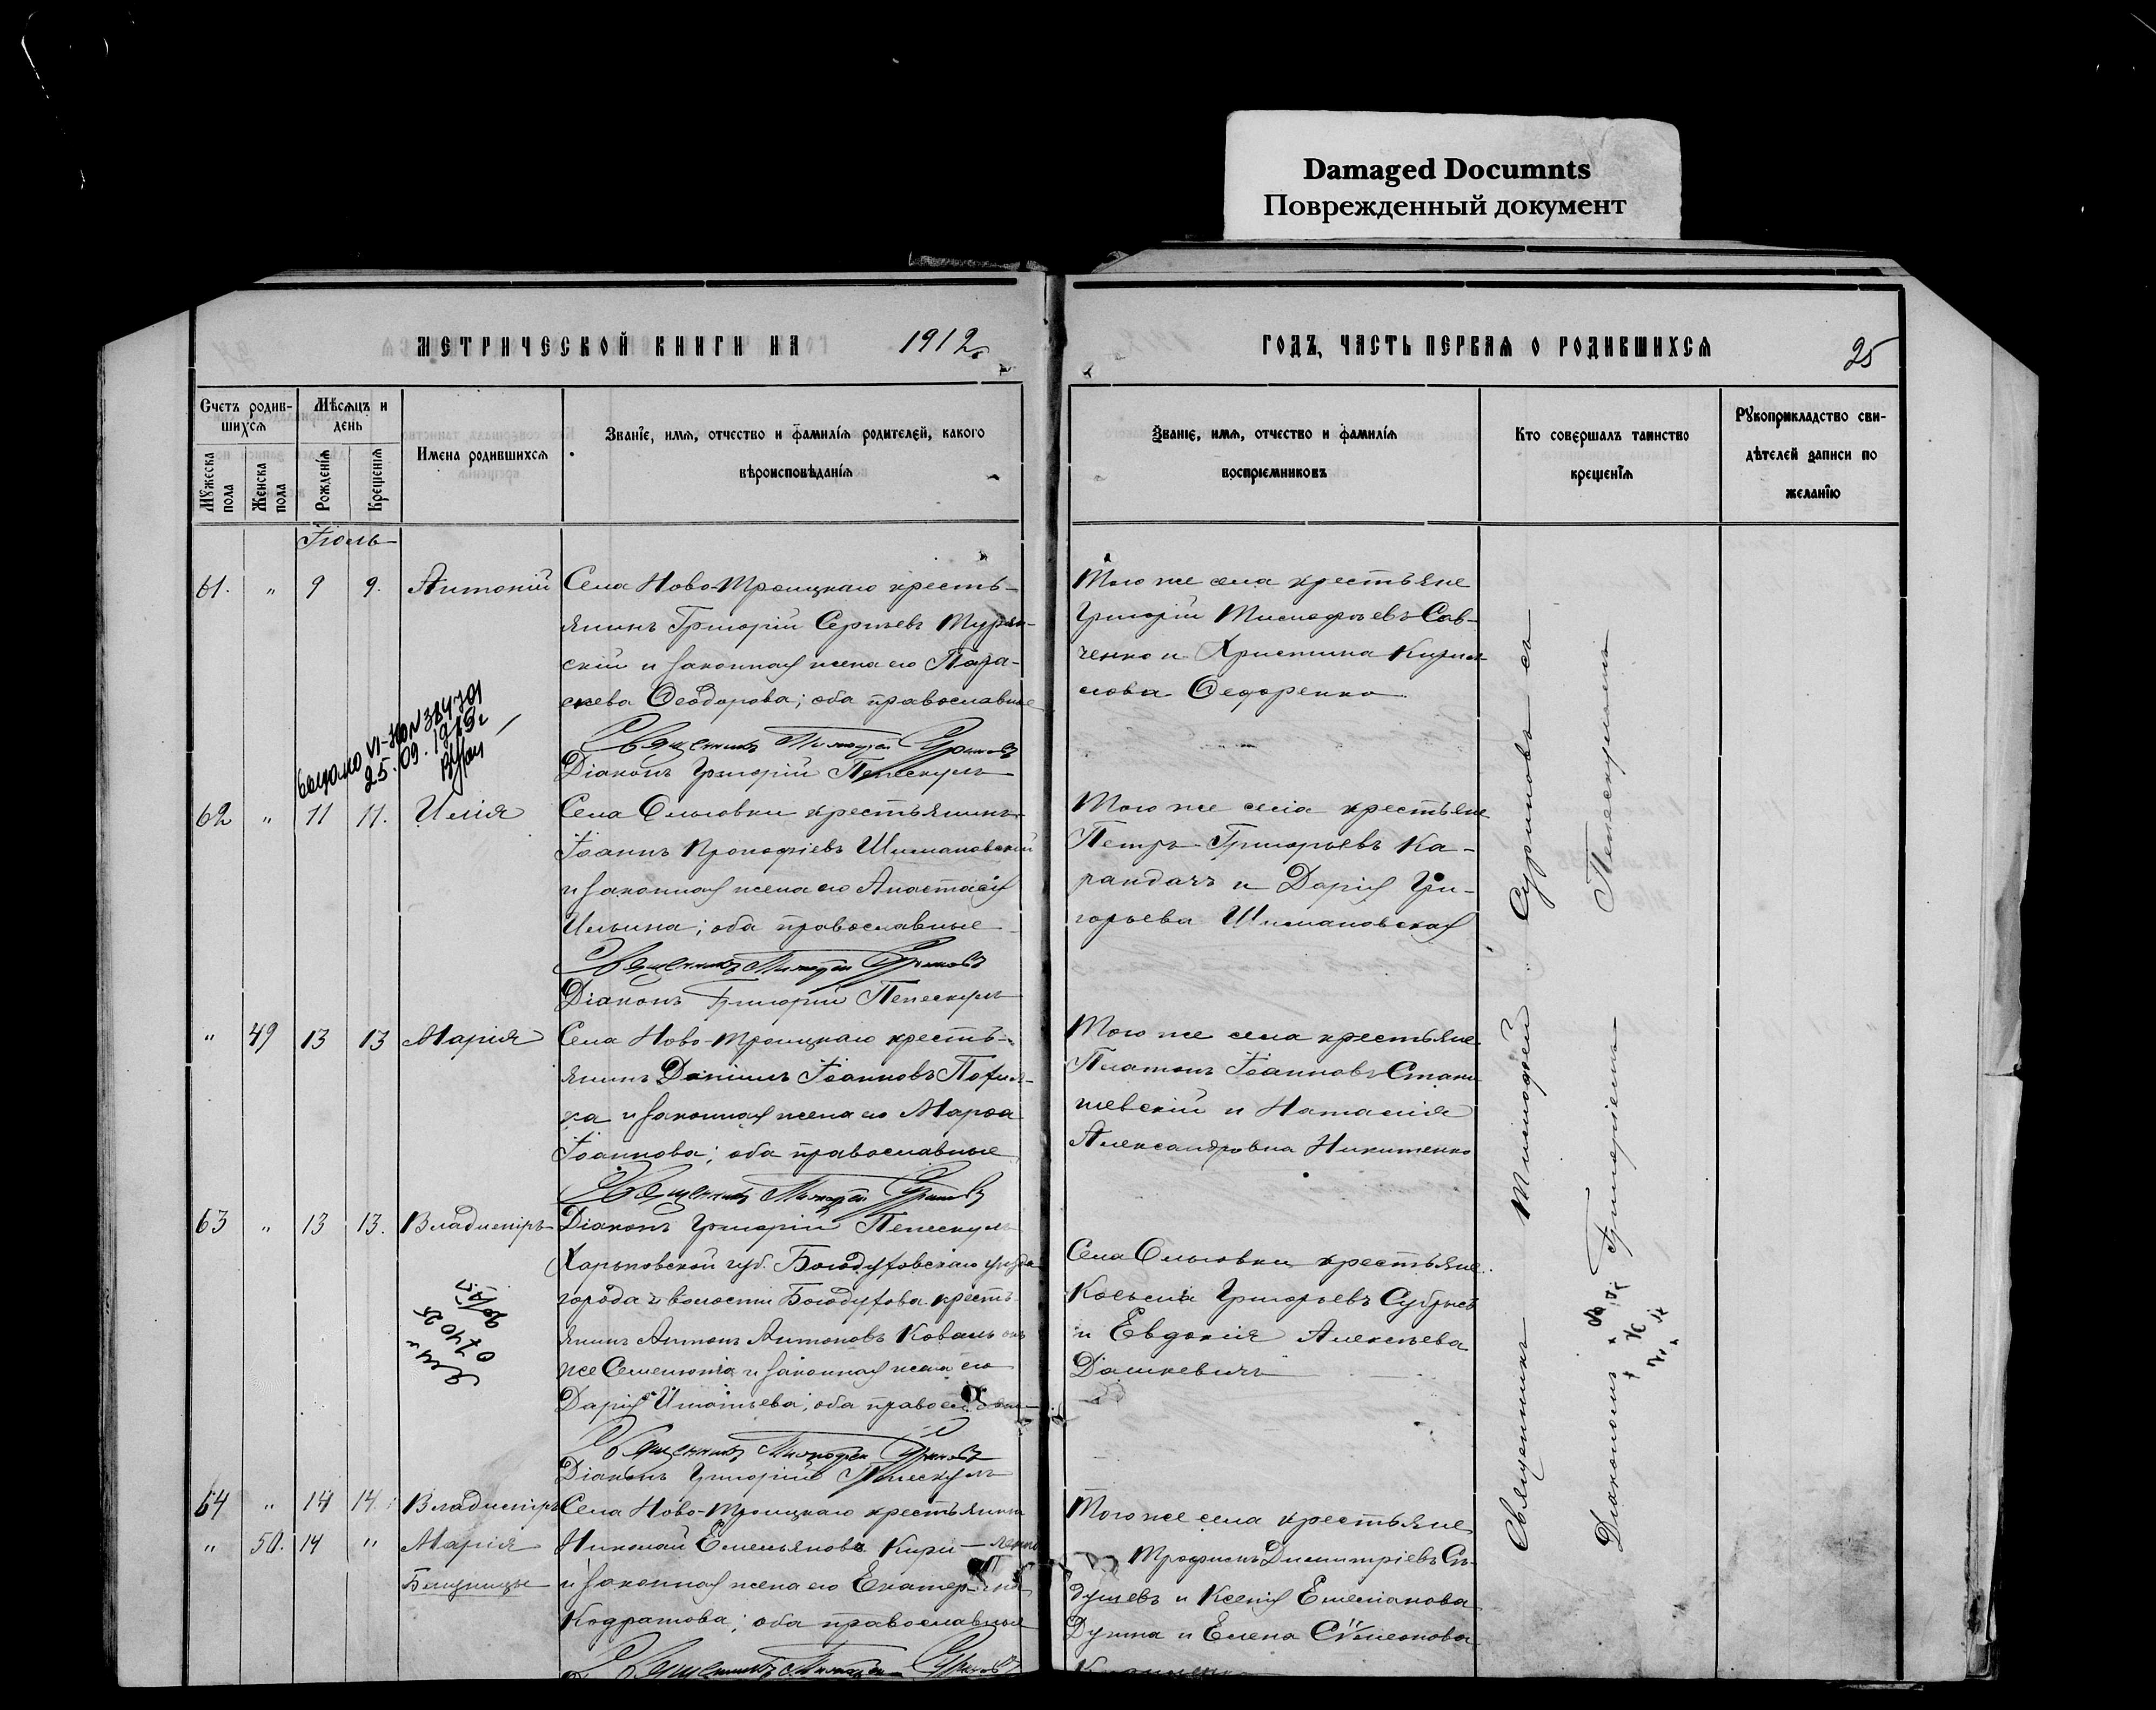 Damaged Documnts
Поврежденный документ
МЕТРИЧЕСКОЙ КНИГИ НА 1912
ГОДЪ, ЧАСТЬ ПЕРВАЯ О РОДИВШИХСЯ 25
Счетъ родив-
шихся
Мѣсяцъ и
день
Мужеска
пола
Женска
пола
Рожденія
Крещенія
Имена родившихся
Званіе, имя, отчество и фамилія родителей, какого
вѣроисповѣданія
Званіе, имя, отчество и фамилія
воспріемниковъ
Кто совершалъ таинство
крещенія
Рукоприкладство сви-
дѣтелей записи по
желанію
Іюль
61. " 9 9. Антоній
Села Ново-Троицкаго кресть-
янинъ Григорій Сергѣевъ
скій и законная жена его Пара-
скева Ѳеодорова; оба православные
Священникъ Тимоѳей Суриновъ
Діаконъ Григорій Пенескулъ
Того же села крестьяне
Григорій Тимоѳеевъ Сав-
ченко и Христина Кирил-
лова Ѳедоренко
25.09.19
62 " 11 11. Илія
Села Ольговки крестьянинъ
Іоаннъ Прокофіевъ Шимановскій
и законная жена его Анастасія
Ильина; оба православные
Священникъ Тимоѳей Суриновъ
Діаконъ Григорій Пенескулъ
Того же села крестьяне
Петръ Григорьевъ Ка-
рандачъ и Дарія Гри-
горьева Шимановская
" 49 13 13 Марія
Села Ново-Троицкаго кресть-
янинъ Даніилъ Іоанновъ
и законная жена его Марѳа
Іоаннова; оба православные
Священникъ Тимоѳей Суриновъ
Того же села крестьяне
Платонъ Іоанновъ Стани-
шевскій и Наталія
Александровна Никитенко
63 " 13 13. Владиміръ
Діаконъ Григорій Пенескулъ
Харьковской губ. Богодуховскаго уѣзда
города и волости Богодухова кресть-
янинъ Антонъ Антоновъ Коваль онъ
же и законная жена его
Дарія Игнатьева; оба православные
Священникъ Тимоѳей Суриновъ
Діаконъ Григорій Пенескулъ
Села Ольговки крестьяне
Косьма Григорьевъ
и Евдокія Алексѣева
Дашкевичъ
64 " 14 14. Владиміръ
" 50. 14 " Марія
Близнецы
Села Ново-Троицкаго крестьянинъ
Николай Емельяновъ Кири-ленко
и законная жена его Екатерина
Кодратова; оба православные
Священникъ Тимоѳей Суриновъ
Того же села крестьяне
Трофимъ Димитріевъ
и Ксенія Емеліанова
и Елена Сѵмеонова
Священникъ Тимоѳей Суриновъ съ
Діакономъ Григоріемъ Пенескуломъ